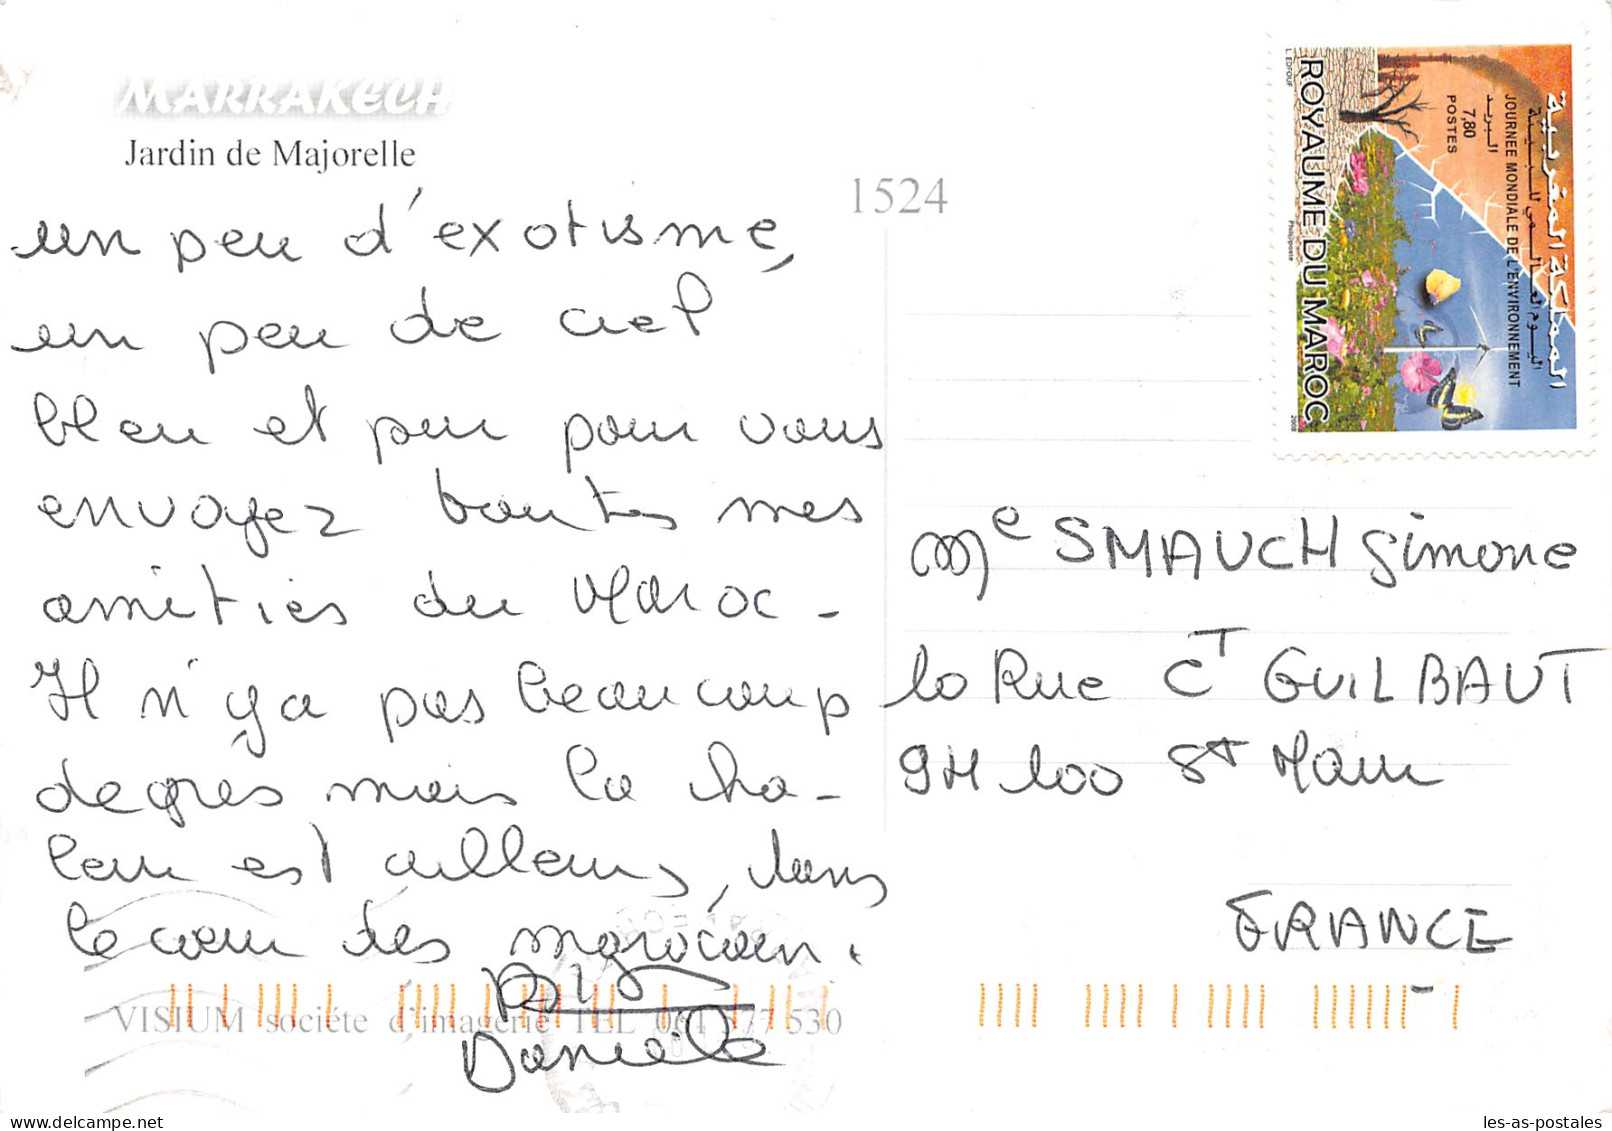 MARRAKECH
Jardin de Majorelle
1524
un peu d'exotisme,
un peu de ciel
bleu et pui pour vous
envoyez toutes mes
amitiés du Maroc -
Il n'y a pas beaucoup
degrés mais la cha-
leur est ailleurs, dans
le cœur des marocain.
Danielle
VISIUM société d'imagerie TEL 061 377 530
المملكة المغربية
اليوم العالمي للبيئة
JOURNEE MONDIALE DE L'ENVIRONNEMENT
البريد
7,80
POSTES
ROYAUME DU MAROC
L. EDFOUF
Phil@poste
Me SMAUCH Simone
10 Rue CT GUILBAUT
94100 St Maur
FRANCE
les-as-postales
delcampe.net